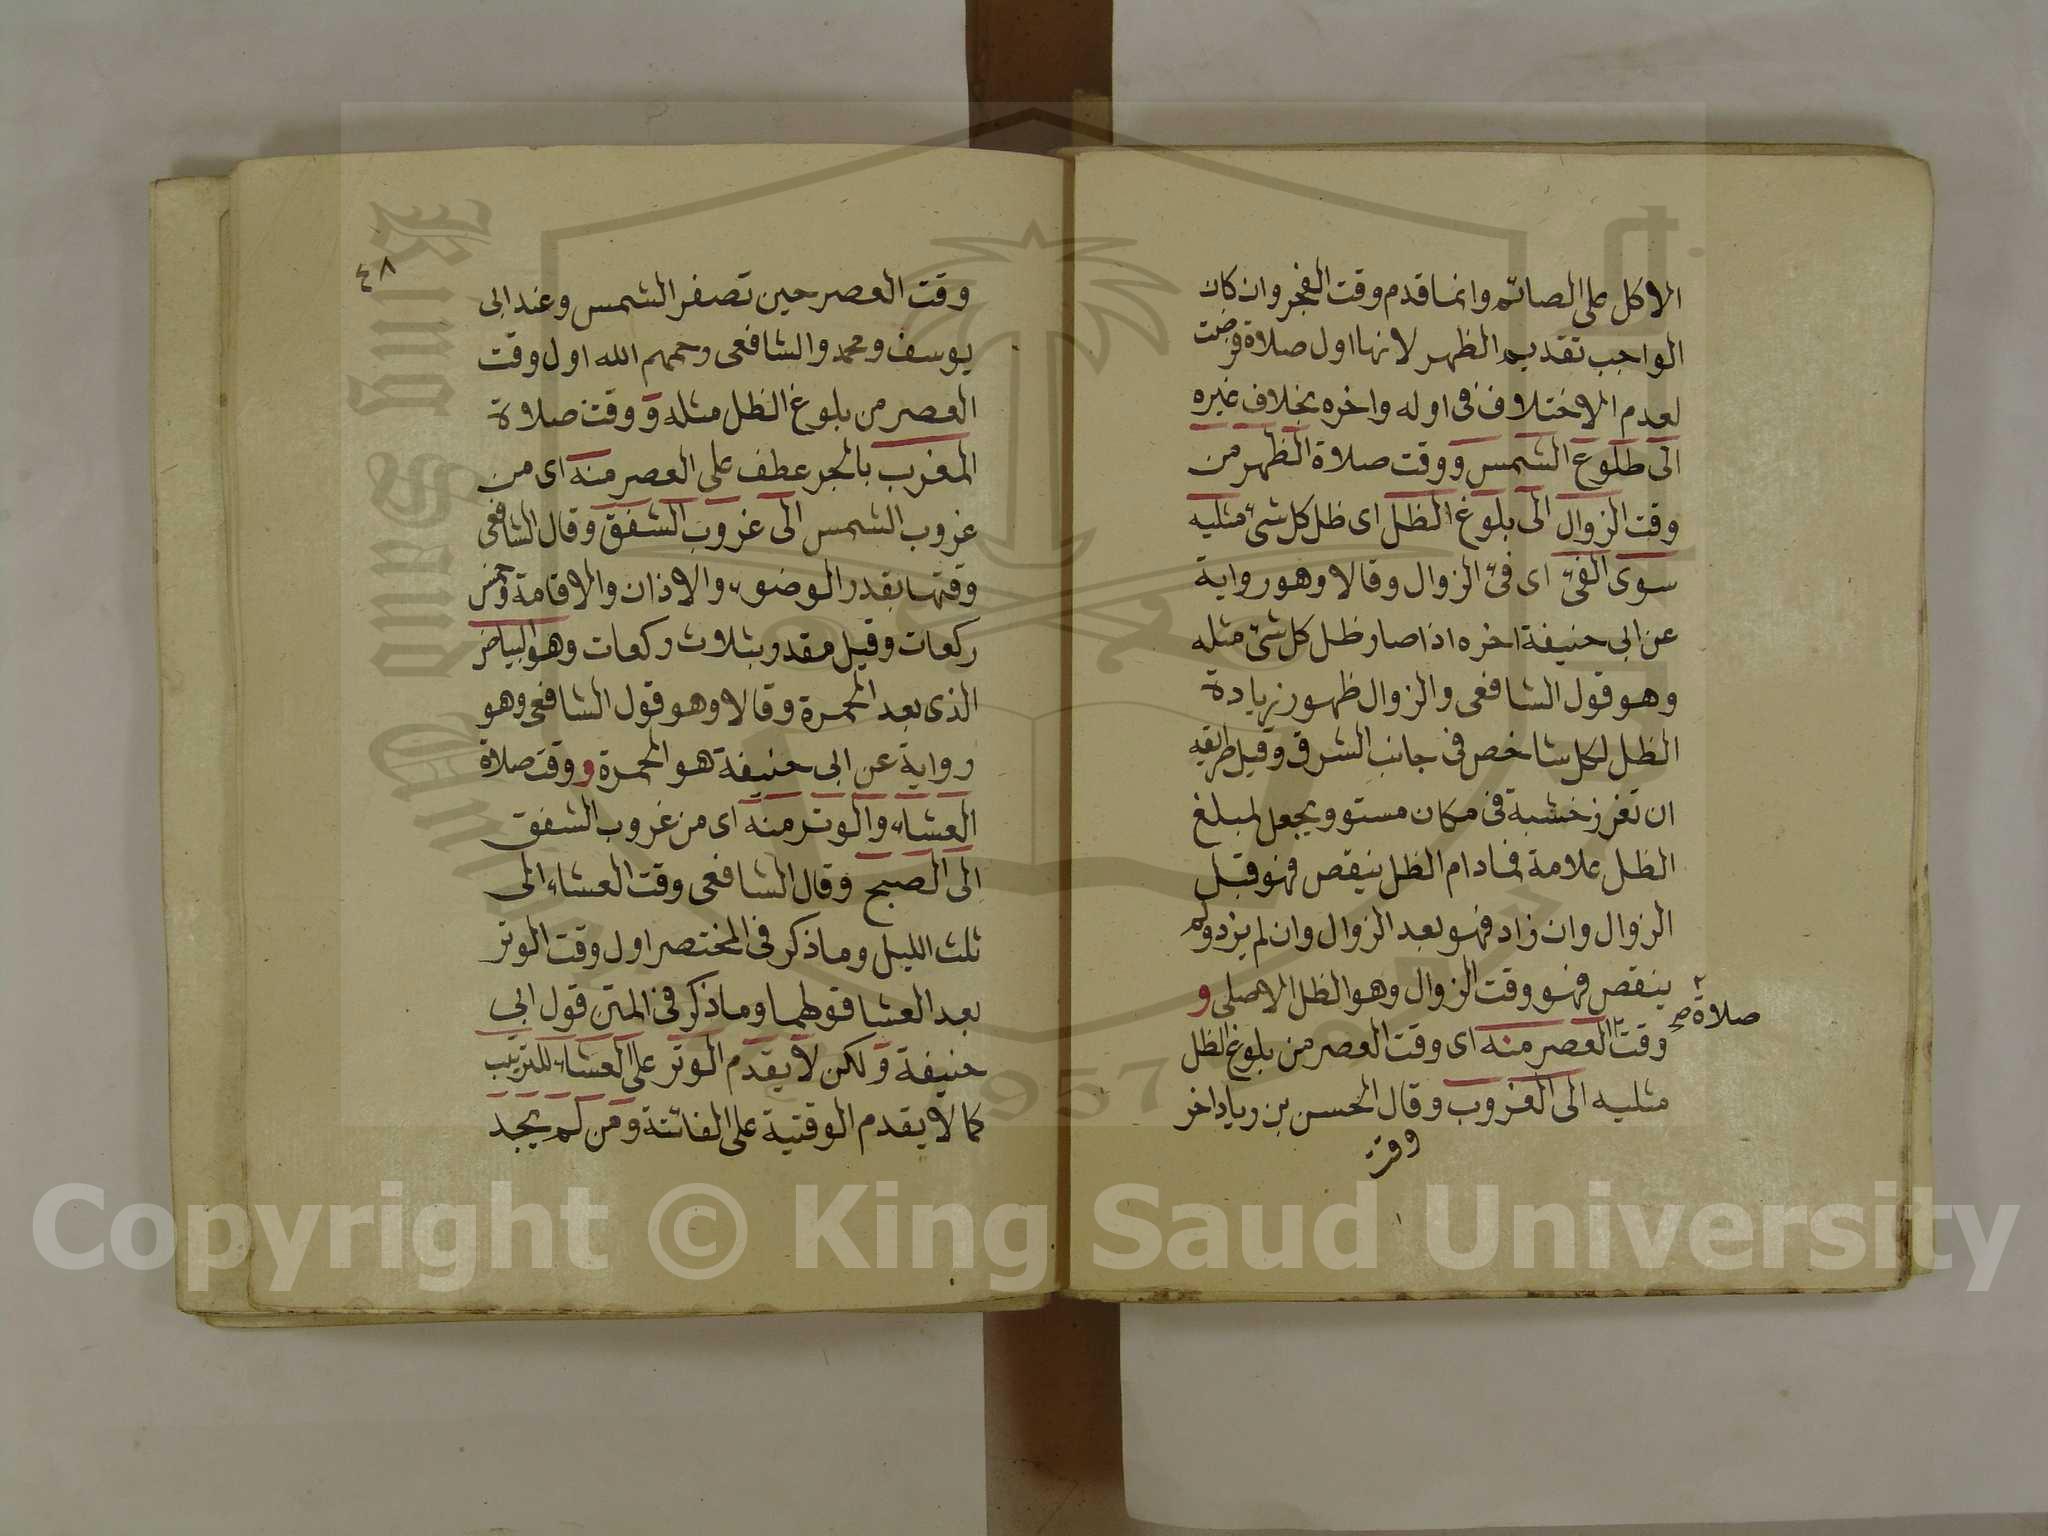 الاكل على الصائم وانما قدم وقت الفجر وان كان
الواجب تقديم الظهر لانها اول صلاة فرضت
لعدم الاختلاف فى اوله واخره بخلاف غيره
الى طلوع الشمس و وقت صلاة الظهر من
وقت الزوال الى بلوغ الظل اى ظل كل شئ مثليه
سوى الفئ اى فئ الزوال وقالا وهو رواية
عن ابى حنيفة اخره اذا صار ظل كل شئ مثله
وهو قول الشافعى والزوال ظهور زيادة
الظل لكل شاخص فى جانب الشرق وقيل طريقه
ان تغرز خشبة فى مكان مستو ويجعل لمبلغ
الظل علامة فمادام الظل ينقص فهو قبل
الزوال وان زاد فهو بعد الزوال وان لم يزد ولم
ينقص فهو وقت الزوال وهو الظل الاصلى و
صلاة صح
وقت العصر منه اى وقت العصر من بلوغ الظل
مثليه الى الغروب وقال الحسن بن زياد اخر
وقت
٤٨
وقت العصر حين تصفر الشمس وعند ابى
يوسف ومحمد والشافعى رحمهم الله اول وقت
العصر من بلوغ الظل مثله و وقت صلاة
المغرب بالجر عطف على العصر منه اى من
غروب الشمس الى غروب الشفق وقال الشافعى
وقتها بقدر الوضوء والاذان والاقامة وخمس
ركعات وقيل مقدر بثلاث ركعات وهو البياض
الذى بعد الحمرة وقالا وهو قول الشافعى وهو
رواية عن ابى حنيفة هو الحمرة و وقت صلاة
العشاء والوتر منه اى من غروب الشفق
الى الصبح وقال الشافعى وقت العشاء الى
ثلث الليل وما ذكر فى المختصر اول وقت الوتر
بعد العشا قولهما وما ذكر فى المتن قول ابى
حنيفة ولكن لا يقدم الوتر على العشاء للترتيب
كما لا يقدم الوقتية على الفائتة ومن لم يجد
Copyright © King Saud University
King Saud University
1957